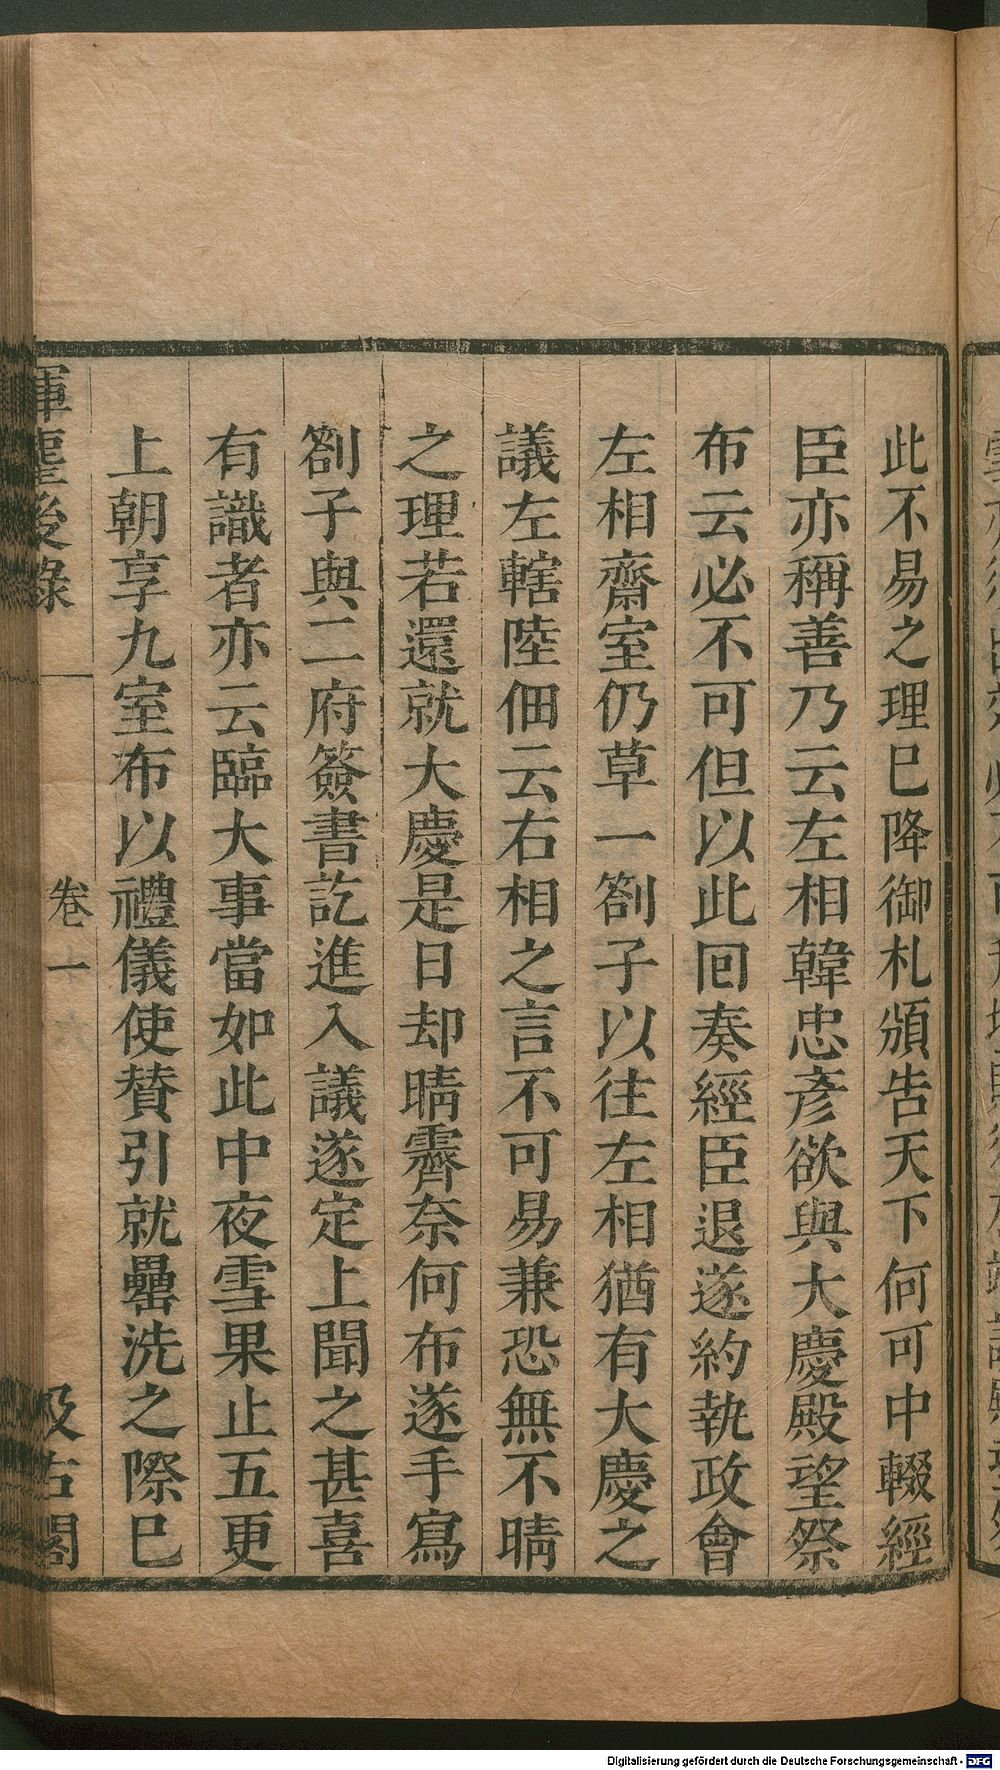 此不易之理巳降御札頒告天下何可中輟經
臣亦稱善乃云左相韓忠彥欲與大慶殿望祭
布云必不可但以此囘奏經臣退遂約執政會
左相齋室仍草一劄子以往左相猶有大慶之
議左轄陸佃云右相之言不可易兼恐無不晴
之理若還就大慶是日却晴霽奈何布遂手寫
劄子與二府簽書訖進入議遂定上聞之甚喜
有識者亦云臨大事當如此中夜雪果止五更
上朝享九室布以禮儀使賛引就罍洗之際巳
揮麈後錄
卷一
六
汲古閣
Digitalisierung gefördert durch die Deutsche Forschungsgemeinschaft - DFG